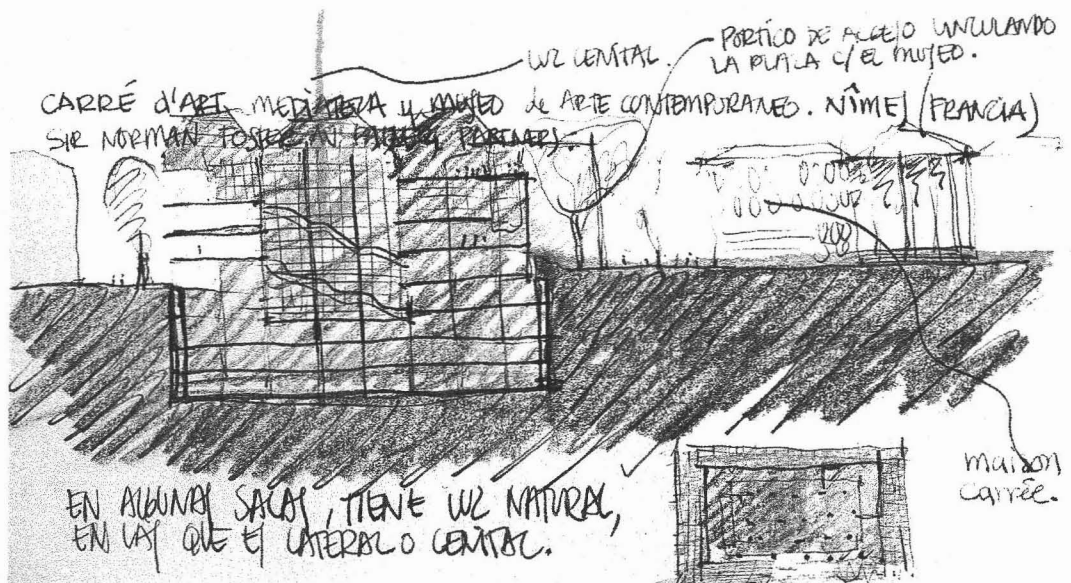 LUZ CENITAL.
PORTICO DE ACCESO VINCULANDO
LA PLAZA C/EL MUSEO.
CARRÉ d'ART MEDIATECA y MUSEO de ARTE CONTEMPORANEO. NÎMES (FRANCIA)
SIR NORMAN FOSTER PARTNERS.
maison
carrée.
EN ALGUNAS SALAS, TIENE LUZ NATURAL,
EN LAS QUE ES LATERAL O CENITAL.